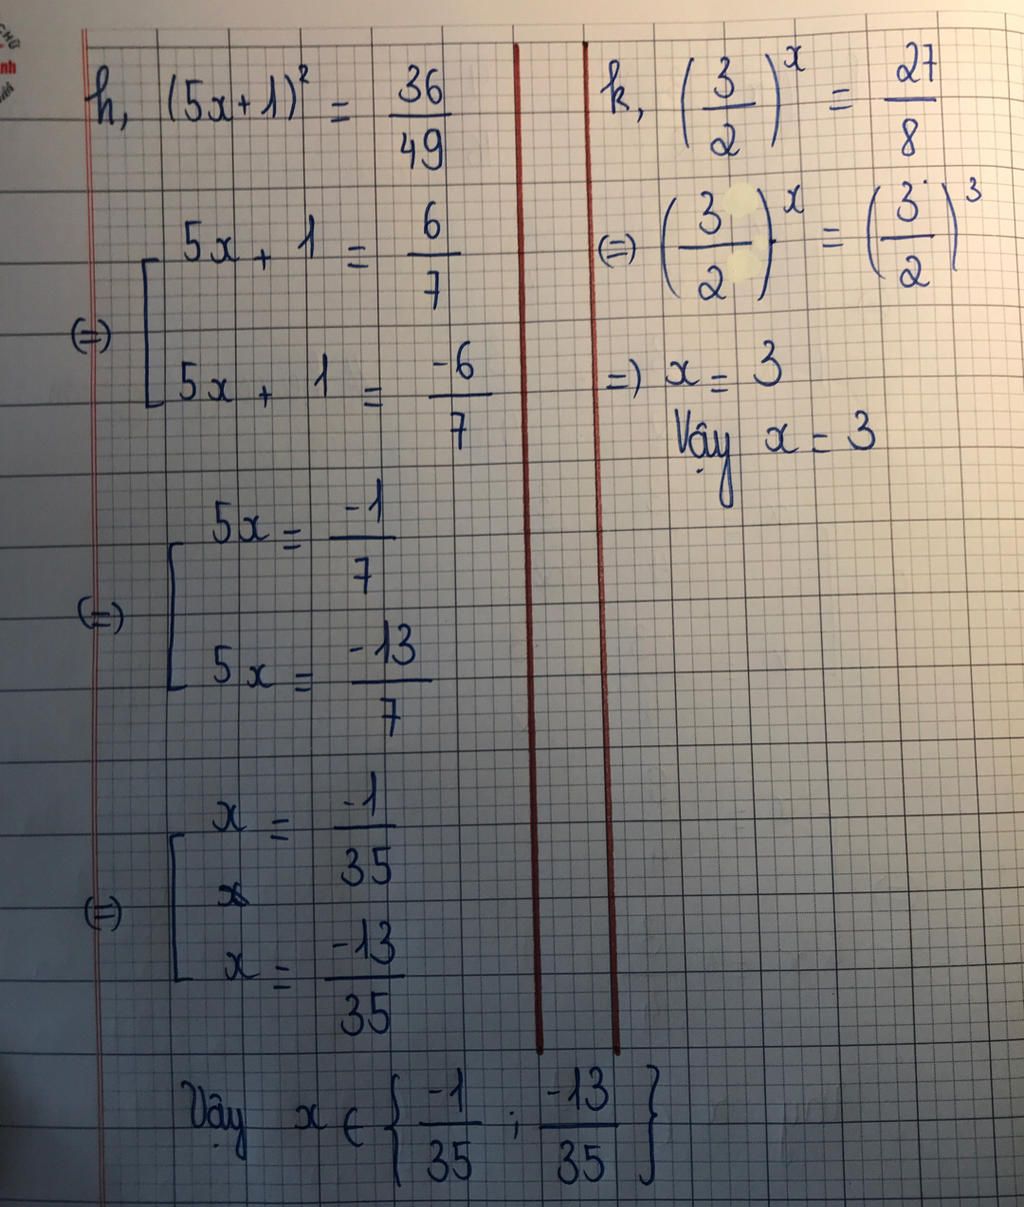 h, (5x+1)² = 36/49
(=) [ 5x + 1 = 6/7
5x + 1 = -6/7
(=) [ 5x = -1/7
5x = -13/7
(=) [ x = -1/35
x = -13/35
Vậy x ∈ { -1/35 ; -13/35 }
k, (3/2)^x = 27/8
(=) (3/2)^x = (3/2)^3
=) x = 3
Vậy x = 3